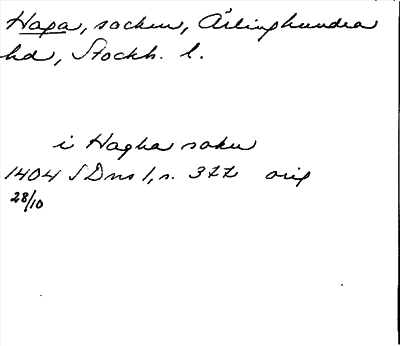 Haga, socken, Ärlinghundra
hd, Stockh. l.
i Hagha sokn
1404 SDns 1, s. 377 orig
28/10